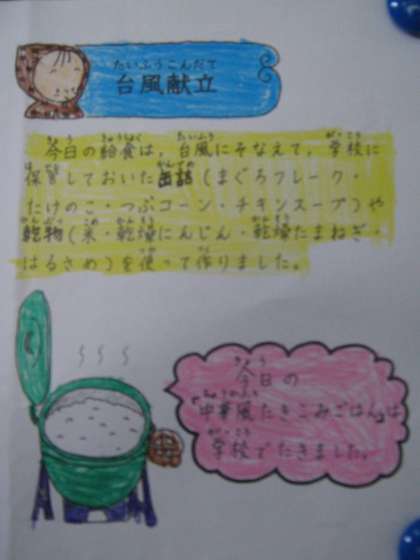 台風献立
今日の給食は，台風にそなえて，学校に
保管しておいた缶詰（まぐろフレーク・
たけのこ・つぶコーン・チキンスープ）や
乾物（米・乾燥にんじん・乾燥たまねぎ・
はるさめ）を使って作りました。
今日の
「中華風たきこみごはん」は
学校でたきました。